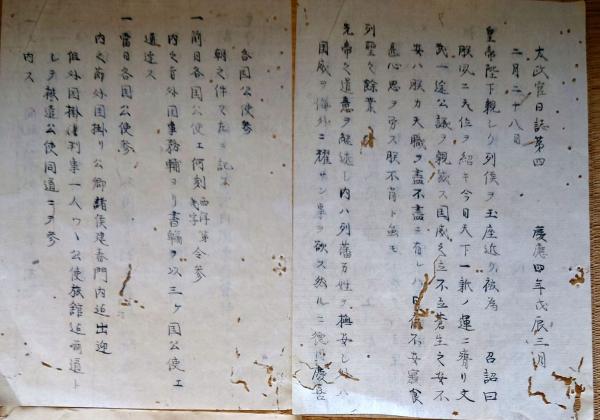 太政官日誌第四 慶應四年戊辰三月
二月二十八日
皇帝陛下親シク列侯ヲ玉座近ク被為 召詔曰
朕夙ニ天位ヲ紹キ今日天下一新ノ運ニ膺リ文
武一途公議ヲ親裁ス国威之立不立蒼生之安不
安ハ朕カ天職ヲ盡不盡ニ有レハ日夜不安寝食
甚心思ヲ労ス朕不肖ト雖モ
列聖之餘業
先帝之遺意ヲ継述シ内ハ列藩万姓ヲ撫安シ外ハ
国威ヲ海外ニ耀サン事ヲ欲ス然ルニ徳川慶喜
各国公使参
朝之件々左ニ記ス
一前日各国公使エ何刻西洋第字参
内之旨外国事務輔ヨリ書翰ヲ以三ケ国公使エ
通達ス
一當日各国公使参
内之節外国掛リ公卿諸侯建春門内迄出迎
但外国掛権判事一人ツヽ公使旅館迄前導ト
シテ被遣公使同道ニテ参
内ス